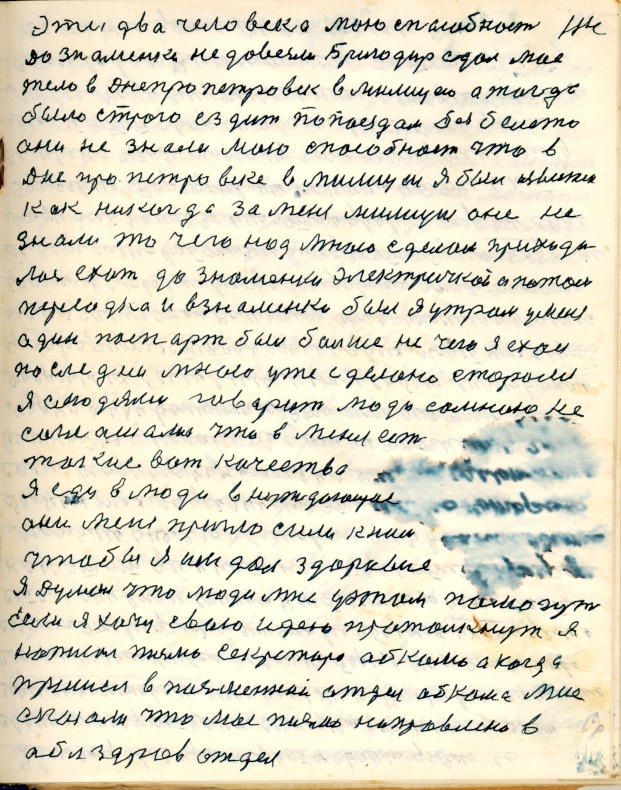 Эти два человека мою способност
до знаменки не довезли Бригодир сдал мое
тело в Днепропетровск в милицию а тогда
было строго ездит по поездам без билета
они не знали мою способност что в
Днепропетровске в милиции я был
как никогда за меня милиция они не
знали то чего над мною сделали приходи
лос ехат до знаменки электричкой а потом
пересадка и в знаменки был я утром у меня
адин паспарт был болше не чего я ехал
последний много уже сделано старався
я с людями говарит люди самною не
согла шалис что в мене ест
такие вот качества
Я еду в люди в нуждающие
они меня пригло сили к ним
чтобы я им дал здоровие
Я думал что люди мне у этом помогут
если я хочу свою идею протолкнут я
написал писмо секретарю обкома а когда
пришел в писменный отдел обкома мне
сказали что мое писмо направлено в
аблздрав отдел